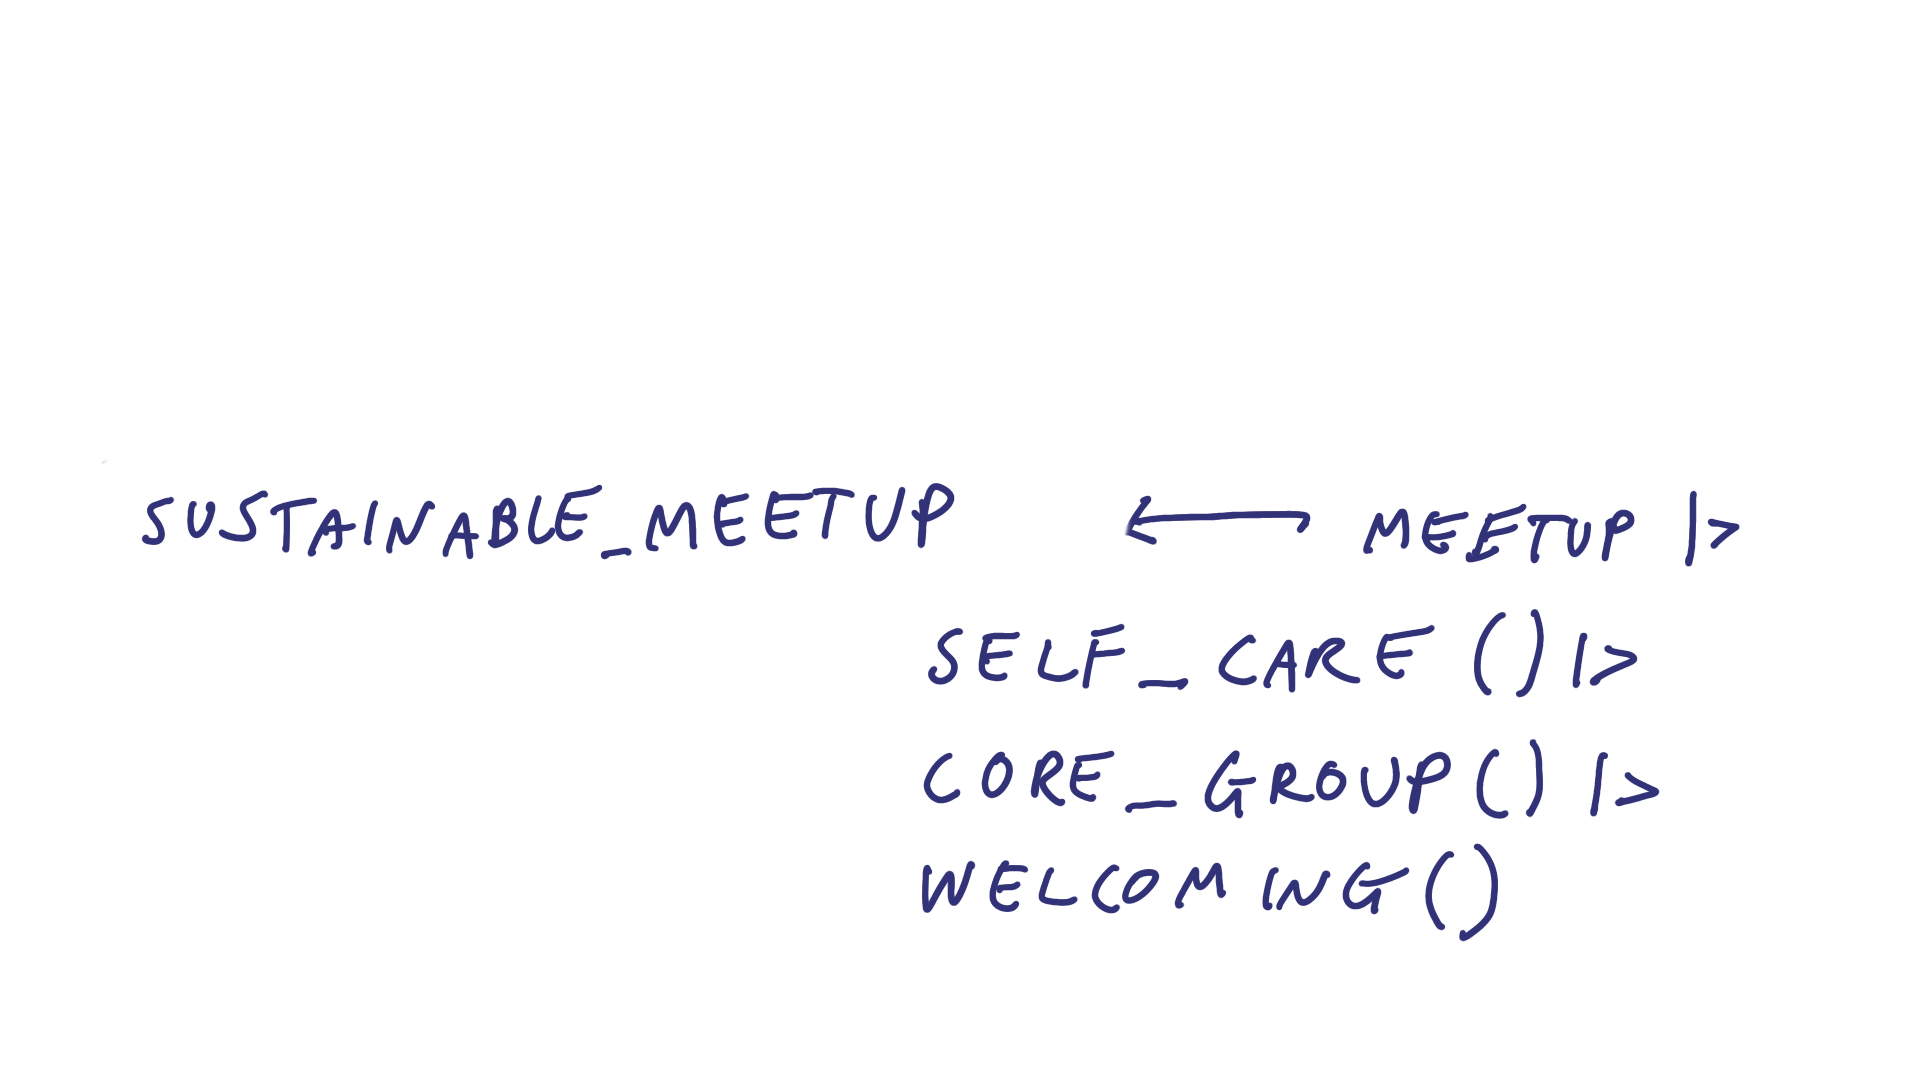 SUSTAINABLE_MEETUP <- MEETUP |>
SELF_CARE () |>
CORE_GROUP() |>
WELCOMING()